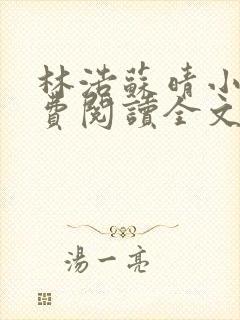 林浩蘇晴小
費閱讀全文
湯一亮